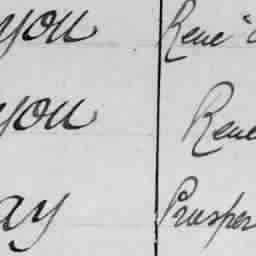 you René
you René
ay Prosper